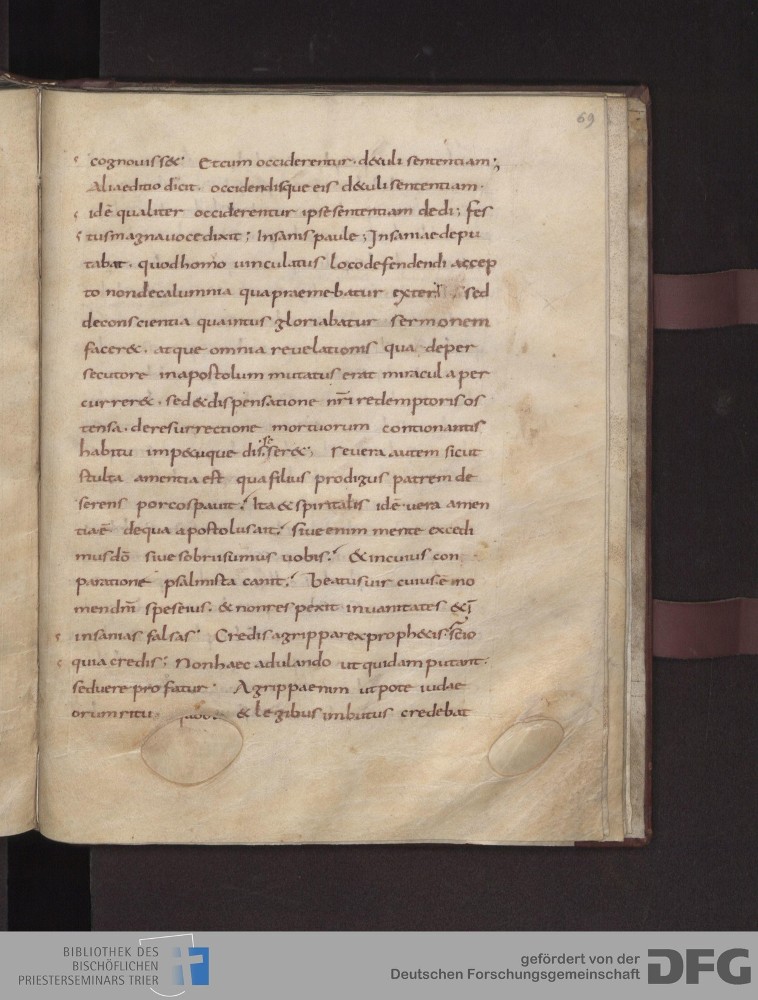 69
cognouisset Et cum occiderentur · detuli sententiam ;
Alia editio dicit · occidendisque eis detuli sententiam ·
idē qualiter occiderentur ipse sententiam dedi ; fes
tus magna uoce dixit ; Insanis paule ; Insaniae depu
tabat · quod homo uinculatus loco defendendi accep
to non de calumnia qua praemebatur exteri sed
de conscientia qua intus gloriabatur sermonem
faceret · atque omnia reuelationis qua de per
secutore in apostolum mutatus erat miracula per
curreret · sed et dispensatione nr̄i redemptoris os
tensa · de resurrectione mortuorum contionantis
habitu impetuque disseret ; Reuera autem sicut
stulta amentia est qua filius prodigus patrem de
serens porcos pauit ; Ita et spiritalis idē uera amen
tia ē de qua apostolus ait ; siue enim mente excedi
mus dō siue sobrii sumus uobis ; Et in cuius con
paratione psalmista canit ; Beatus uir cuius ē no
men dn̄i spes eius · et non respexit in uanitates et ī
insanias falsas · Credis agrippa rex prophetis · scio
quia credis ; Non haec adulando ut quidam putant ·
sed uere profatur · Agrippa enim utpote iudae
orum ritu et legibus imbutus credebat
BIBLIOTHEK DES
BISCHÖFLICHEN
PRIESTERSEMINARS TRIER
gefördert von der
Deutschen Forschungsgemeinschaft
DFG